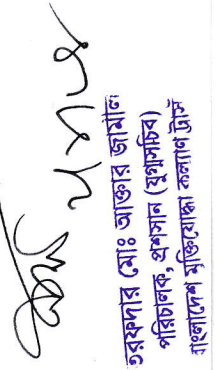 তরফদার মোঃ আক্তার জামীল
পরিচালক, প্রশাসন (যুগ্মসচিব)
বাংলাদেশ মুক্তিযোদ্ধা কল্যাণ ট্রাস্ট